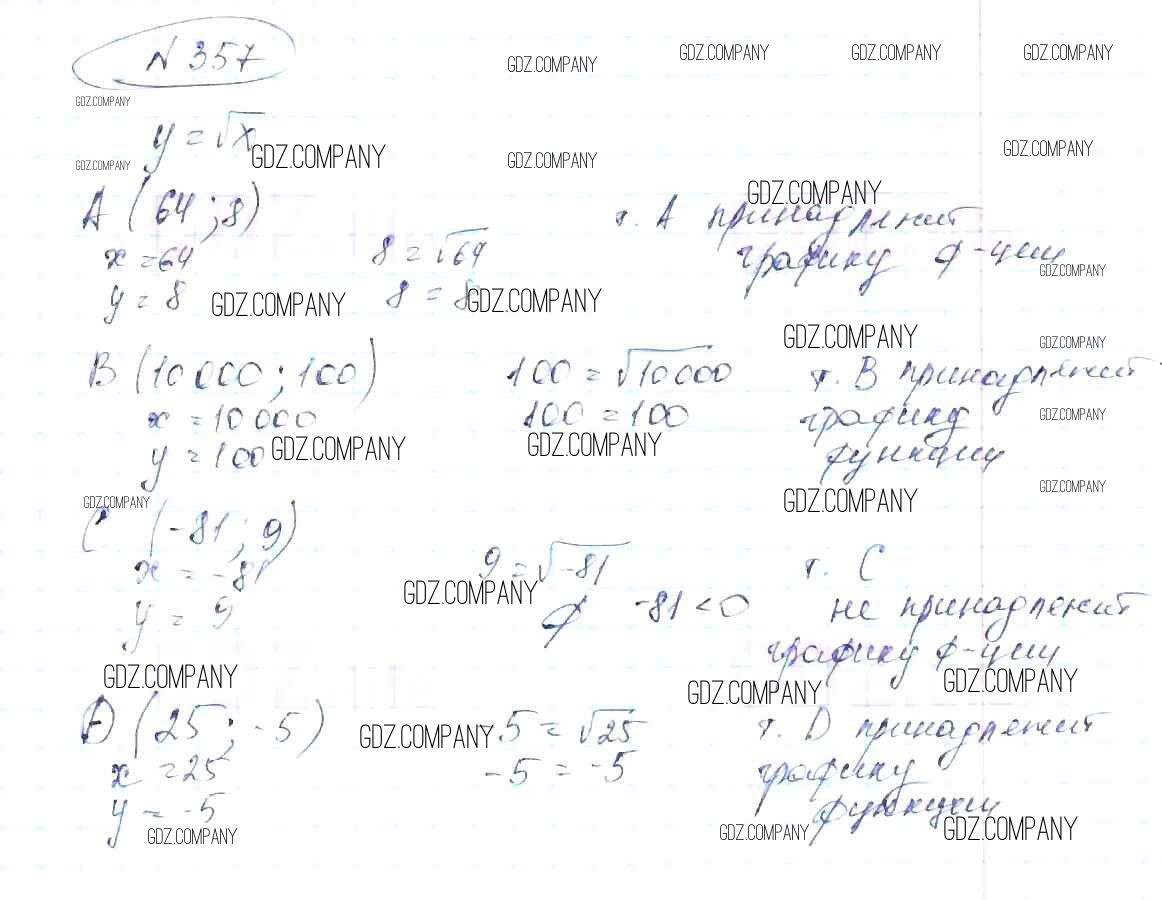 N 357
GDZ.COMPANY GDZ.COMPANY GDZ.COMPANY GDZ.COMPANY
GDZ.COMPANY
y = √x
GDZ.COMPANY GDZ.COMPANY GDZ.COMPANY GDZ.COMPANY
GDZ.COMPANY
A (64 ; 8) т. A принадлежит
x = 64 8 = √64 графику ф-ции
GDZ.COMPANY
y = 8 GDZ.COMPANY 8 = 8 GDZ.COMPANY
GDZ.COMPANY GDZ.COMPANY
B (10 000 ; 100) 100 = √10 000 т. B принадлежит
x = 10 000 100 = 100 графику GDZ.COMPANY
y = 100 GDZ.COMPANY GDZ.COMPANY функции
GDZ.COMPANY GDZ.COMPANY GDZ.COMPANY
C (-81 ; 9)
x = -81 9 = √-81 т. C
GDZ.COMPANY
y = 9 ∅ -81 < 0 не принадлежит
графику ф-ции
GDZ.COMPANY GDZ.COMPANY GDZ.COMPANY
D (25 ; -5) GDZ.COMPANY -5 = √25 т. D принадлежит
x = 25 -5 = -5 графику
y = -5 функции
GDZ.COMPANY GDZ.COMPANY GDZ.COMPANY